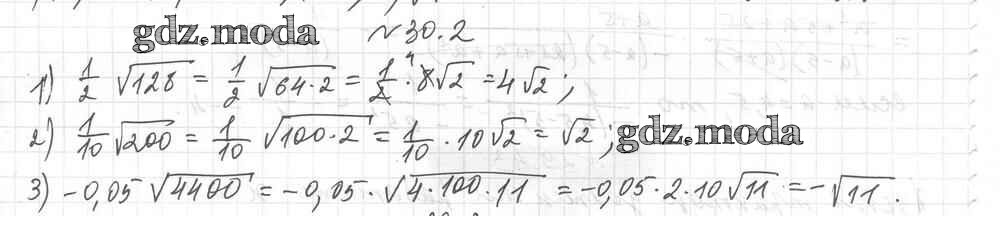 gdz.moda №30.2
1) 1/2 √128 = 1/2 √64·2 = 1/2 · 8√2 = 4√2;
2) 1/10 √200 = 1/10 √100·2 = 1/10 · 10√2 = √2; gdz.moda
3) -0,05 √4400 = -0,05 · √4·100·11 = -0,05·2·10√11 = -√11.